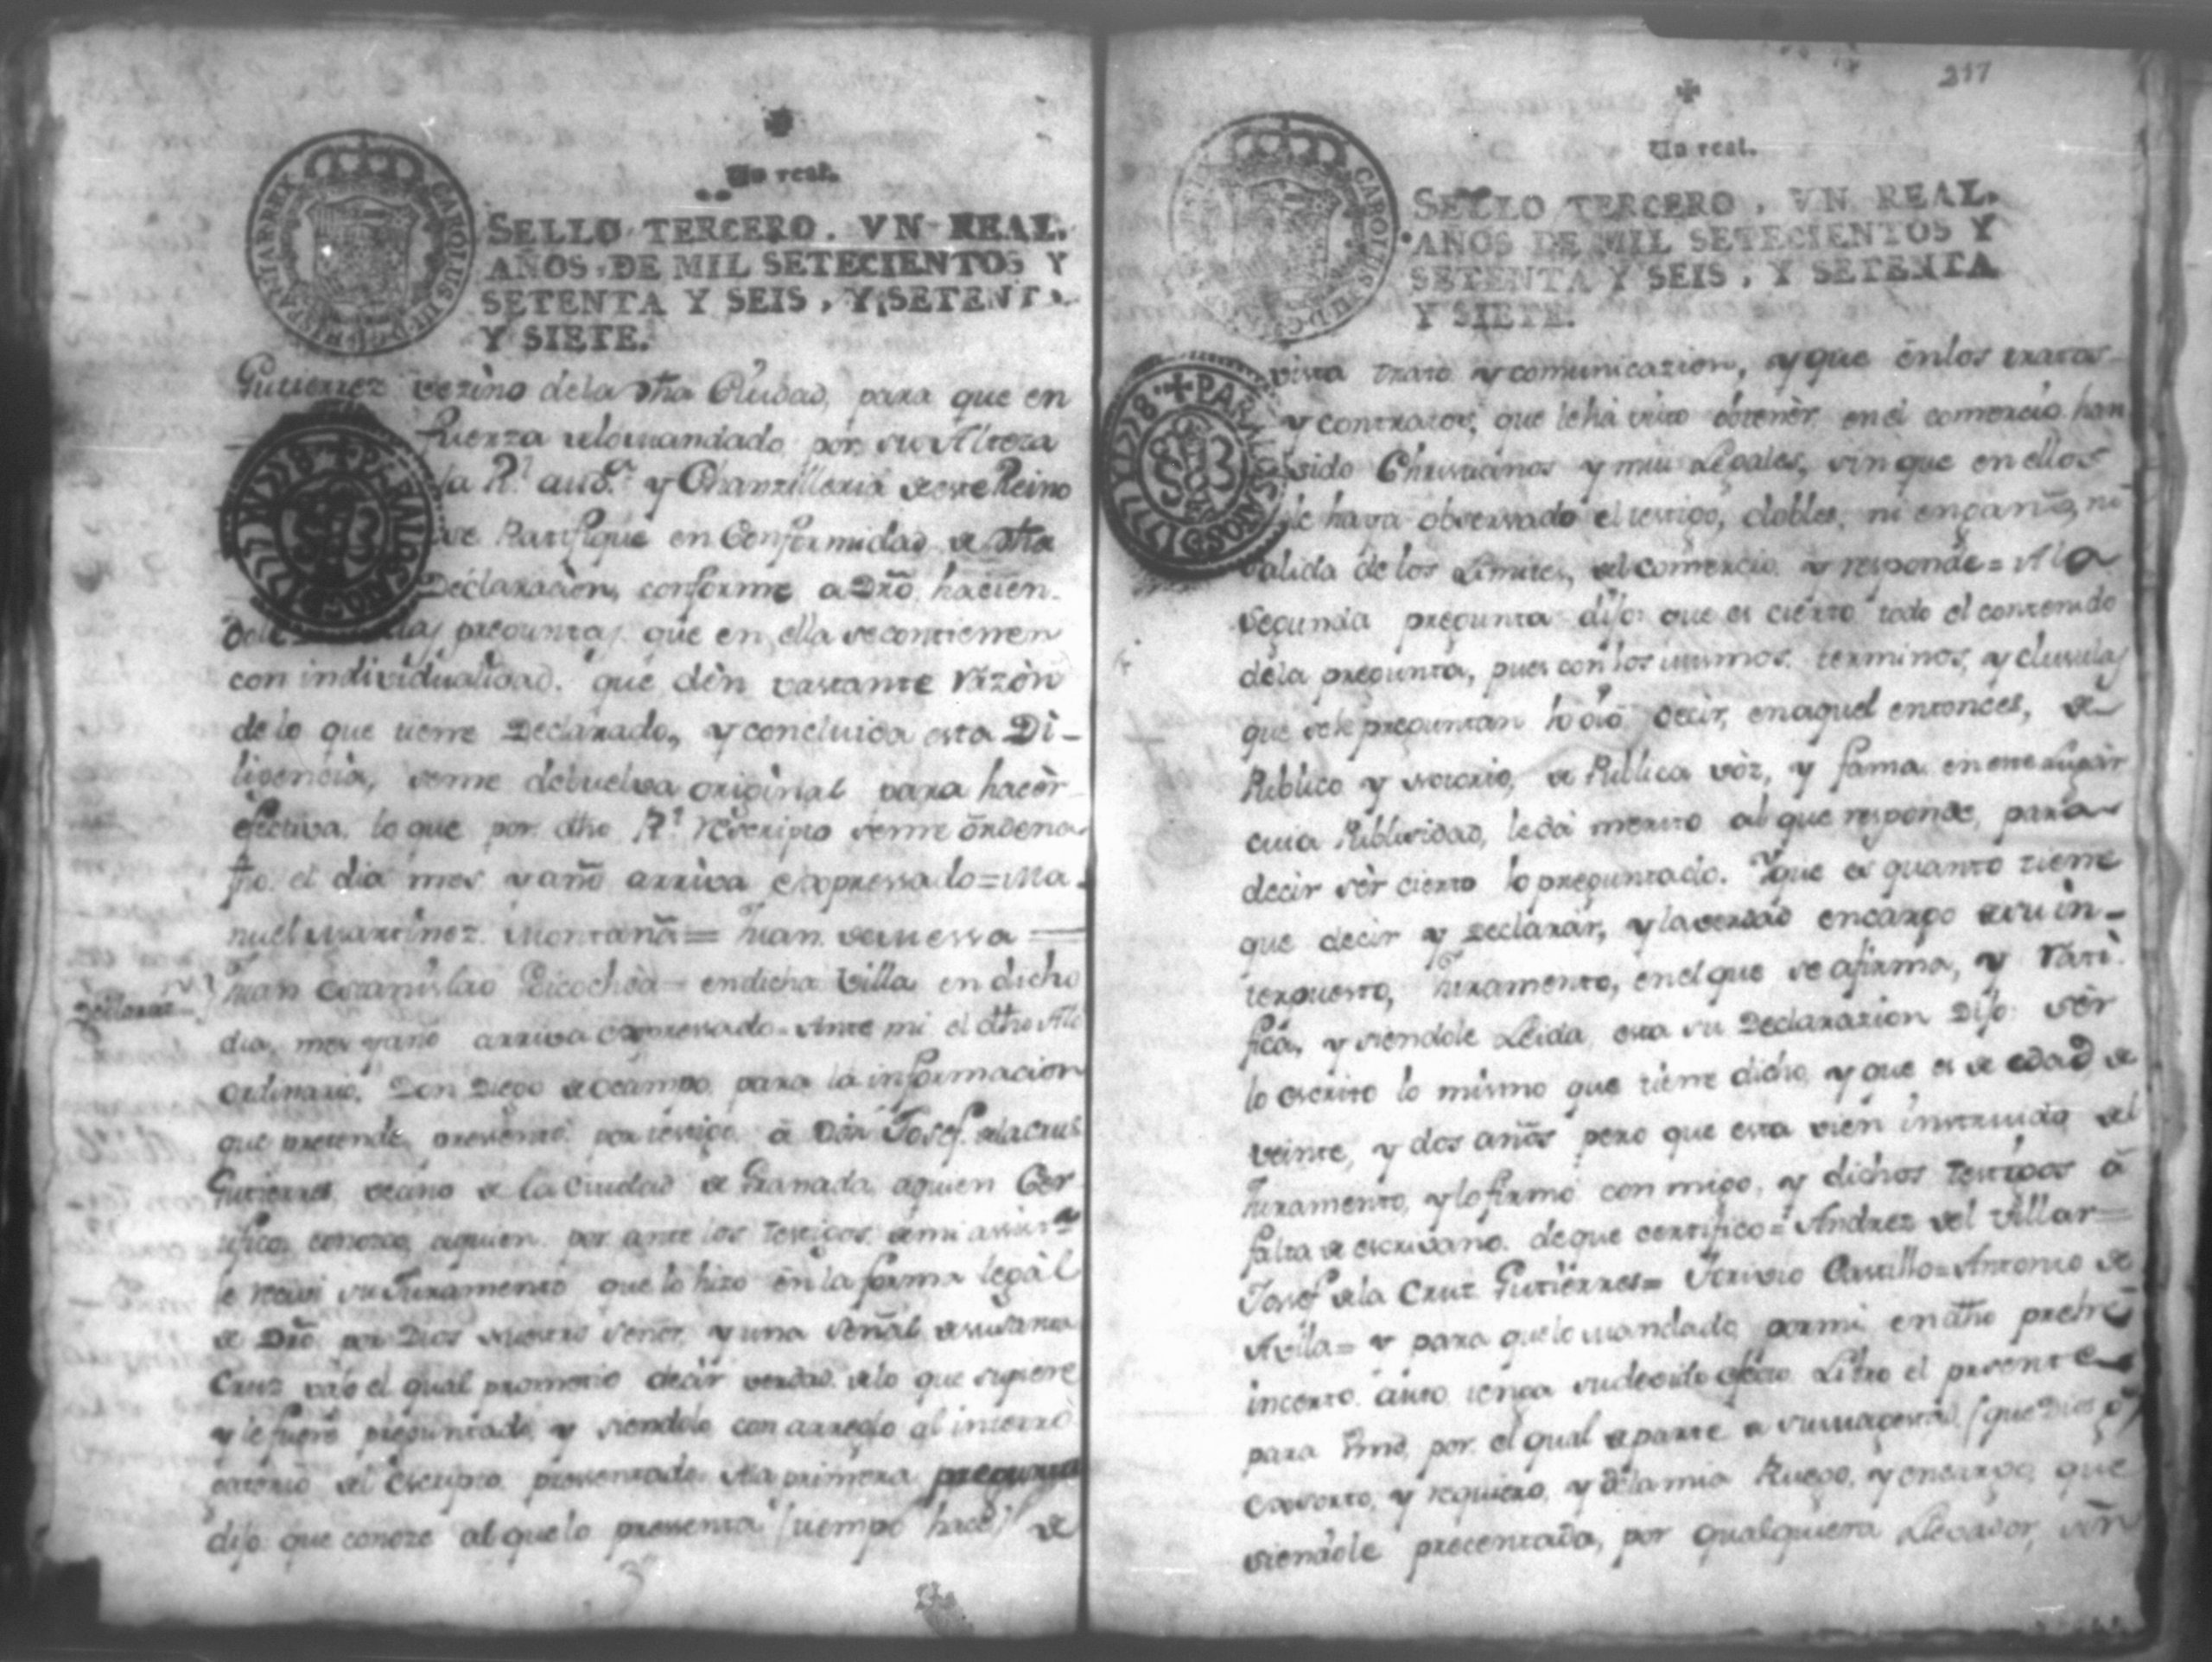 Un real.
SELLO TERCERO. VN REAL.
AÑOS DE MIL SETECIENTOS Y
SETENTA Y SEIS, Y SETENTA
Y SIETE.
Gutierrez vezino dela dha Ciudad, para que en
fuerza delo mandado por su Alteza
la Rl. aud.a y Chanzilleria de este Reino
se Ratifique en Conformidad de dha
Declaracion, conforme a Dro. hacien-
preguntas que en ella se contienen
con individualidad. que dèn vastante razòn
de lo que tiene Declarado, y concluida esta Di-
ligencia, seme debuelva original para hacèr
efectiva lo que por dho Rl. rescripto seme òrdena
fho. el dia mes y año arriva expressado=Ma-
nuel Martinez Montaña= Juan
Juan Estanislao Gicochea= en dicha Villa en dicho
dia, mes y año arriva expressado= Ante mi el dho Alc.
ordinario, Don Diego de ocampo para la informacion
que pretende, presentò por testigo à Don Josef dela Cruz
Gutierres, vecino de la Ciudad de Granada aquien Cer-
tifico conozco, aquien por ante los testigos de mi assist.a
le recivi su Juramento que lo hizo en la forma legàl
de Dro. por Dios nuestro señor, y una señal de su santa
Cruz vajo el qual prometio decir verdad delo que supiere
y le fuere preguntado, y siendolo con arreglo al interro-
gatorio del escripto presentado. Ala primera pregunta
dijo que conoze al que lo pressenta (tiempo hace) de
217
Un real.
SELLO TERCERO, VN REAL.
AÑOS DE MIL SETECIENTOS Y
SETENTA Y SEIS, Y SETENTA
Y SIETE.
vista trato y comunicazion, y que ènlos tratos
y contratos, que le ha visto obtenèr en el comercio han
sido Christianos y mui Legales, sin que en ellos
le haya observado el testigo, dobles, ni engaños, ni
salida de los Limites, del comercio y responde= Ala
segunda pregunta dijo: que es cierto todo el contenido
dela pregunta, pues con los mismos terminos, y clusulas
que sele preguntan lo oiò decir, en aquel entonces, de
Publico y notorio, de Publica vòz, y fama en este Lugàr
cuia Publicidad, le dà merito al que responde, para
decir sèr cierto lo preguntado. Y que es quanto tiene
que decir y Declarar, y la verdad encargo de su in-
terpuesto, Juramento, en el que se afirma, y rati-
fica, y siendole Leida esta su Declarazion Dijo: sèr
lo escrito lo mismo que tiene dicho, y que es de edad de
veinte, y dos años pero que esta vien instruido del
Juramento, y lo firmò con migo, y dichos testigos à
falta de escrivano. deque certifico= Andrez del Villar=
Josef dela Cruz Gutièrres= Castillo=Antonio de
Avila= y para que lo mandado por mi en dho prehe
incerto auto tenga su devido efecto Libro el presente
para Vmd, por el qual de parte de su magestad (que Dios g.e)
exsorto, y requiero, y dela mia Ruego, y encargo, que
siendole precentada, por qualquiera Llevador, sin